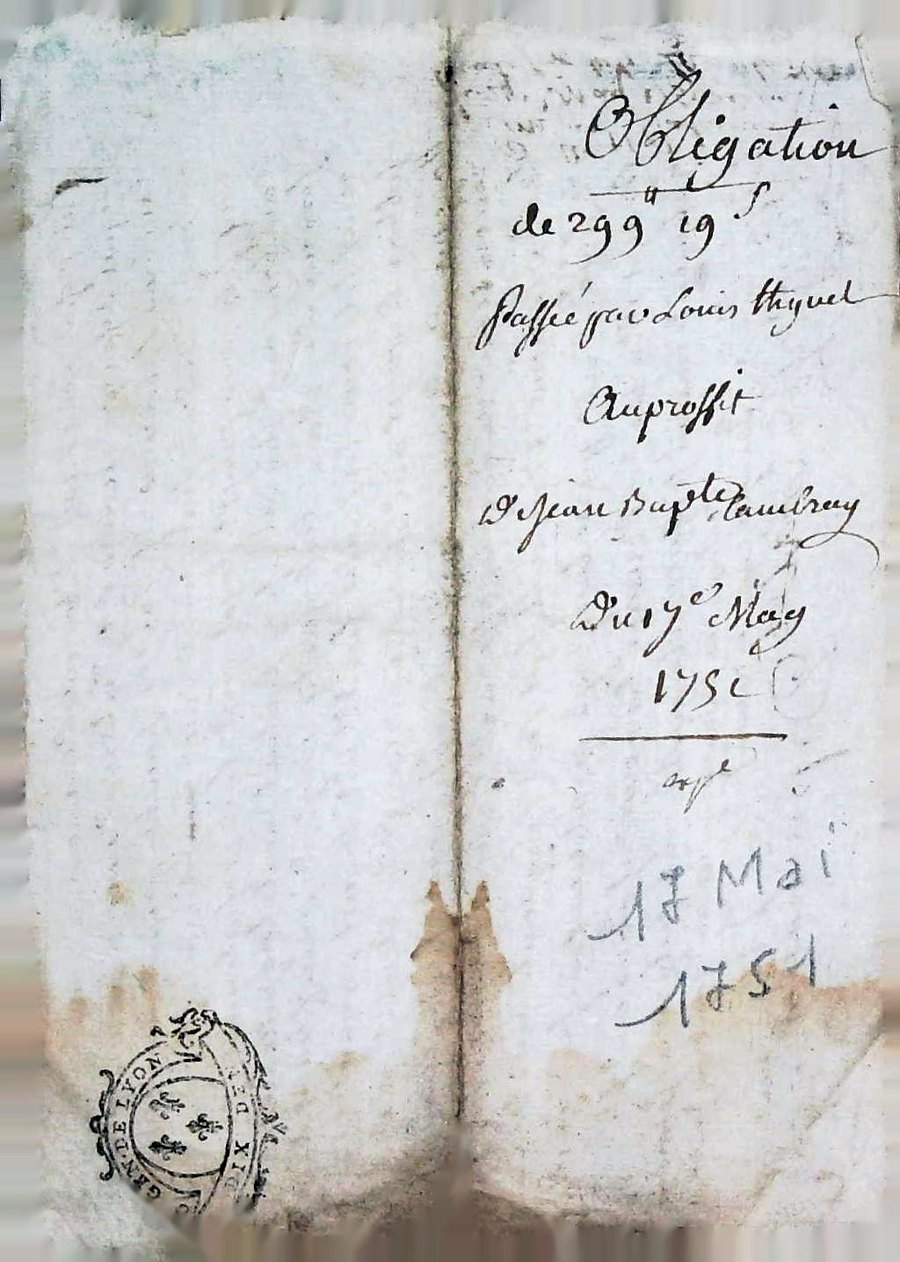 Obligation
de 299ᵗᵗ 19ˢ
Passée par Louis
Auproffit
De Jean Bapᵗᵉ Cambray
Du 17ᵉ May
1751
17 Mai
1751
GEN. DE LYON
DIX DEN